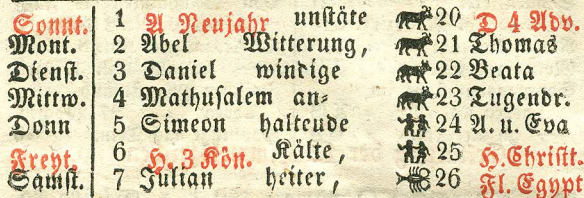 Sonnt. 1 A Neujahr unſtäte 20 D 4 Adv.
Mont. 2 Abel Witterung, 21 Thomas
Dienſt. 3 Daniel windige 22 Beata
Mittw. 4 Mathuſalem an- 23 Tugendr.
Donn 5 Simeon halteude 24 A. u. Eva
Freyt. 6 H. 3 Kön. Kälte, 25 H. Chriſtt.
Samſt. 7 Julian heiter, 26 Fl. Egypt